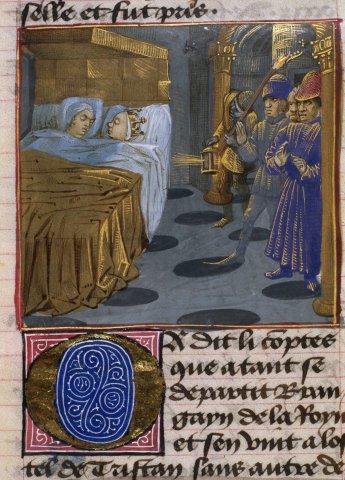 selle et fut pris.
Or dit li cõptes
que a tant se
departit Bran
gayn de la Royn
et sen vint a los
tel de Tristan sans autre de